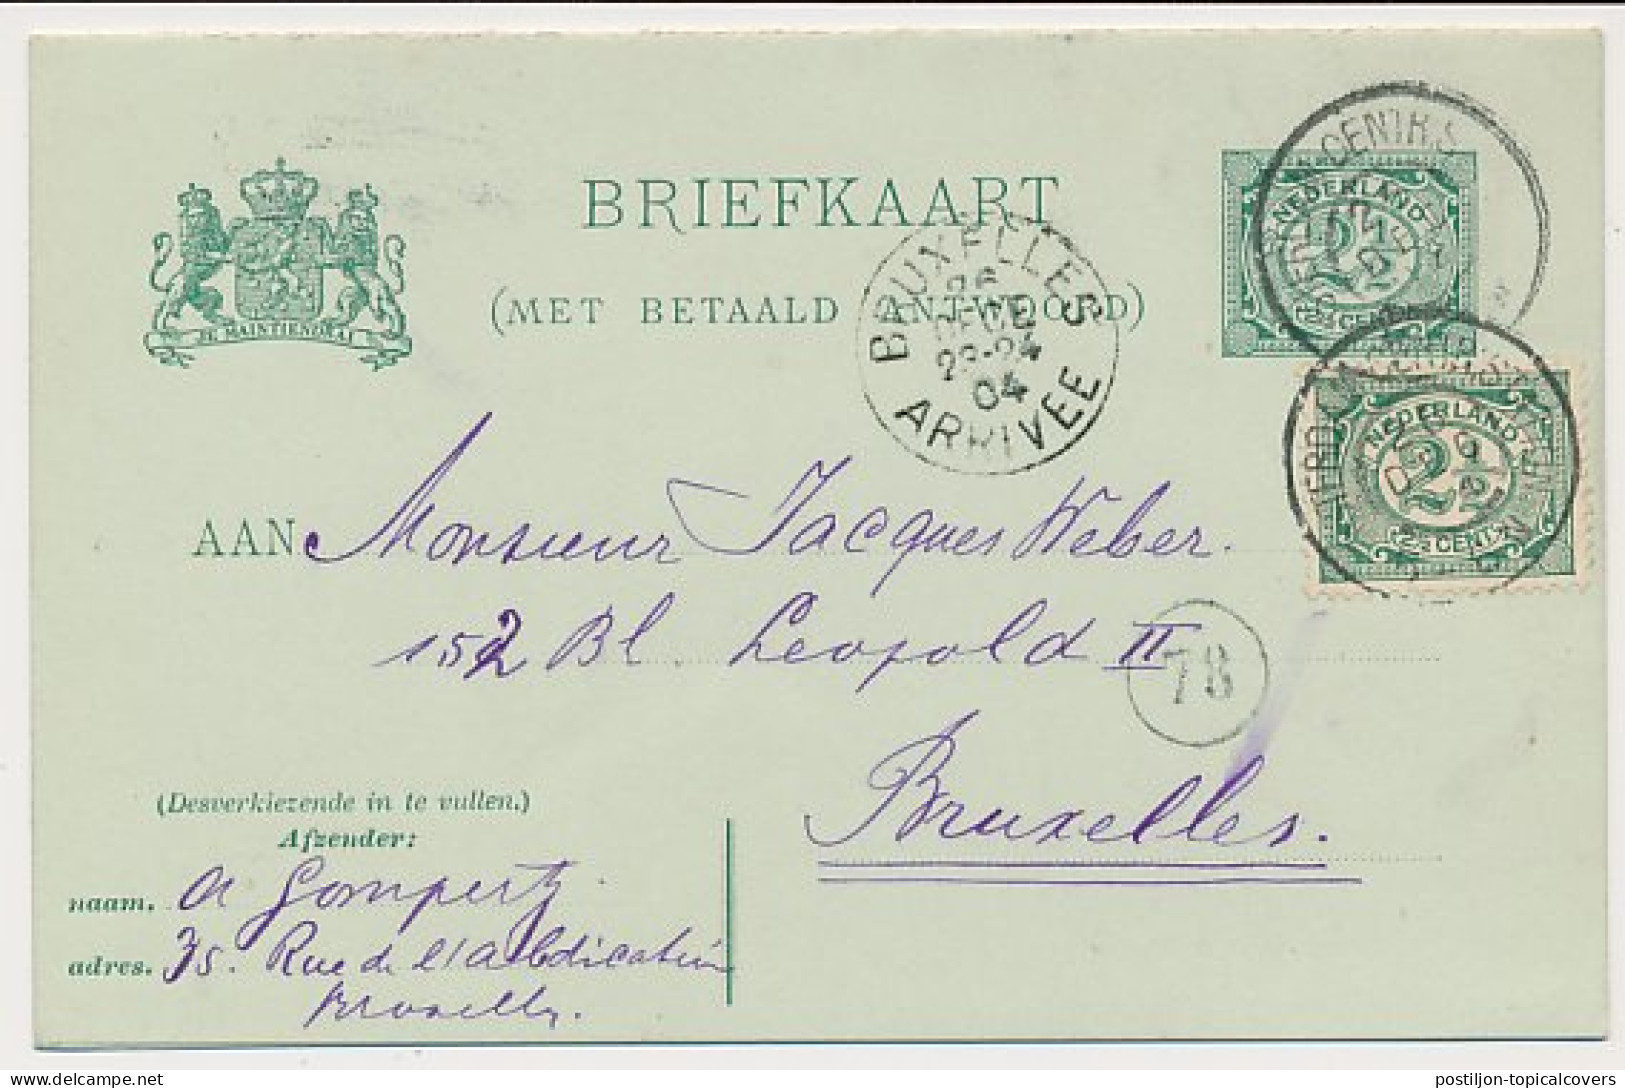 BRIEFKAART
(MET BETAALD ANTWOORD)
JE MAINTIENDRAI
NEDERLAND
2½
2½ CENT
CENTR.S
BRUXELLES
26
DECE
04
ARRIVEE
NEDERLAND
2½
2½ CENT
AAN Monsieur Jacques Weber.
152 Bl. Leopold II
78
Bruxelles.
(Desverkiezende in te vullen.)
Afzender:
naam. A Gompertz.
adres. 35. Rue de l'abdication
Bruxelles.
postiljon-topicalcovers